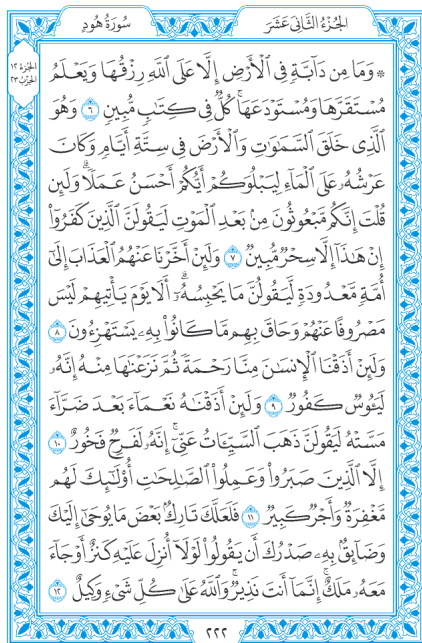 الجُزْءُ الثَّانِي عَشَرَ
سُورَةُ هُودٍ
الجزء ١٢
الحزب ٢٣
۞ وَمَا مِن دَآبَّةٍ فِي ٱلْأَرْضِ إِلَّا عَلَى ٱللَّهِ رِزْقُهَا وَيَعْلَمُ
مُسْتَقَرَّهَا وَمُسْتَوْدَعَهَاۚ كُلٌّ فِي كِتَٰبٍ مُّبِينٍ ٦ وَهُوَ
ٱلَّذِي خَلَقَ ٱلسَّمَٰوَٰتِ وَٱلْأَرْضَ فِي سِتَّةِ أَيَّامٍ وَكَانَ
عَرْشُهُۥ عَلَى ٱلْمَآءِ لِيَبْلُوَكُمْ أَيُّكُمْ أَحْسَنُ عَمَلًاۗ وَلَئِن
قُلْتَ إِنَّكُم مَّبْعُوثُونَ مِنۢ بَعْدِ ٱلْمَوْتِ لَيَقُولَنَّ ٱلَّذِينَ كَفَرُوٓا۟
إِنْ هَٰذَآ إِلَّا سِحْرٌ مُّبِينٌ ٧ وَلَئِنْ أَخَّرْنَا عَنْهُمُ ٱلْعَذَابَ إِلَىٰٓ
أُمَّةٍ مَّعْدُودَةٍ لَّيَقُولُنَّ مَا يَحْبِسُهُۥٓۗ أَلَا يَوْمَ يَأْتِيهِمْ لَيْسَ
مَصْرُوفًا عَنْهُمْ وَحَاقَ بِهِم مَّا كَانُوا۟ بِهِۦ يَسْتَهْزِءُونَ ٨
وَلَئِنْ أَذَقْنَا ٱلْإِنسَٰنَ مِنَّا رَحْمَةً ثُمَّ نَزَعْنَٰهَا مِنْهُ إِنَّهُۥ
لَيَـُٔوسٌ كَفُورٌ ٩ وَلَئِنْ أَذَقْنَٰهُ نَعْمَآءَ بَعْدَ ضَرَّآءَ
مَسَّتْهُ لَيَقُولَنَّ ذَهَبَ ٱلسَّيِّـَٔاتُ عَنِّيٓۚ إِنَّهُۥ لَفَرِحٌ فَخُورٌ ١٠
إِلَّا ٱلَّذِينَ صَبَرُوا۟ وَعَمِلُوا۟ ٱلصَّٰلِحَٰتِ أُو۟لَٰٓئِكَ لَهُم
مَّغْفِرَةٌ وَأَجْرٌ كَبِيرٌ ١١ فَلَعَلَّكَ تَارِكٌۢ بَعْضَ مَا يُوحَىٰٓ إِلَيْكَ
وَضَآئِقٌۢ بِهِۦ صَدْرُكَ أَن يَقُولُوا۟ لَوْلَآ أُنزِلَ عَلَيْهِ كَنزٌ أَوْ جَآءَ
مَعَهُۥ مَلَكٌۚ إِنَّمَآ أَنتَ نَذِيرٌۚ وَٱللَّهُ عَلَىٰ كُلِّ شَيْءٍ وَكِيلٌ ١٢
٢٢٢